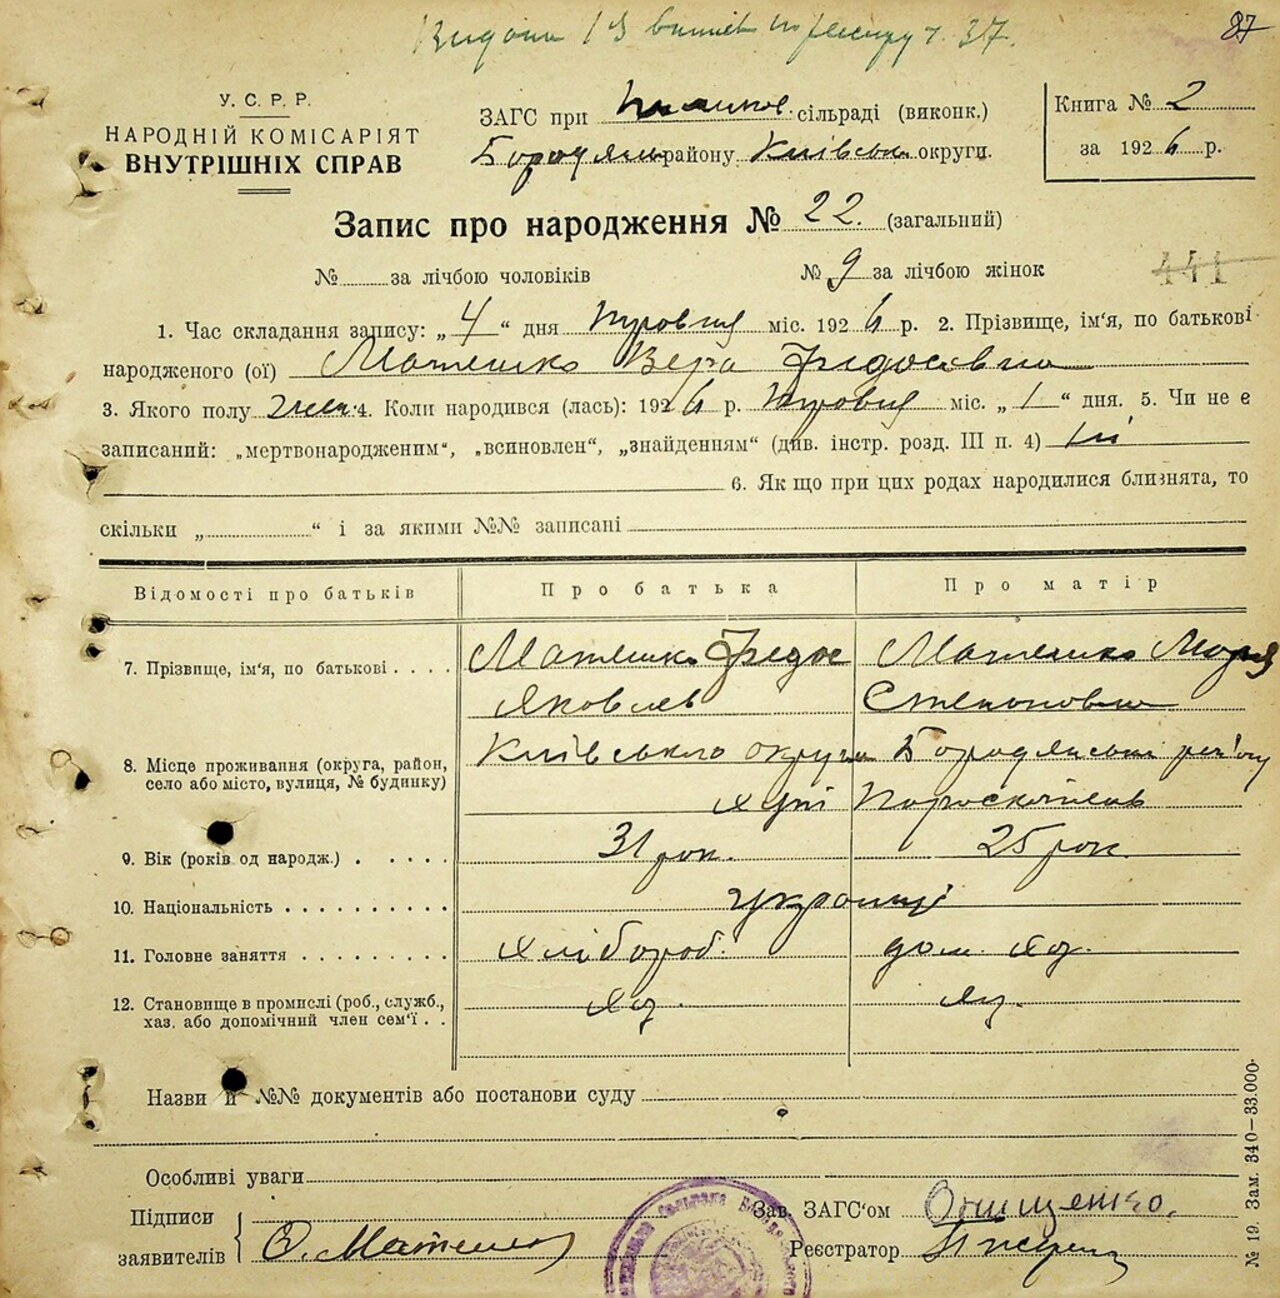 87
У. С. Р. Р.
НАРОДНІЙ КОМІСАРІЯТ
ВНУТРІШНІХ СПРАВ
ЗАГС при сільраді (виконк.)
Бородянс району Київськ округи.
Книга № 2
за 1926 р.
Запис про народження № 22. (загальний)
№ за лічбою чоловіків № 9 за лічбою жінок
441
1. Час складання запису: „4“ дня міс. 1926 р. 2. Прізвище, ім'я, по батькові
народженого (ої) Матешко Вера Федосовна
3. Якого полу жен. 4. Коли народився (лась): 1926 р. міс. „1“ дня. 5. Чи не є
записаний: „мертвонародженим“, „всиновлен“, „знайденням“ (див. інстр. розд. III п. 4) ні
6. Як що при цих родах народилися близнята, то
скільки „ “ і за якими №№ записані
Відомості про батьків Про батька Про матір
7. Прізвище, ім'я, по батькові Матешко Федос Матешко Мария
Яковлев Степановна
8. Місце проживання (округа, район, Київського округи Бородянський район
село або місто, вулиця, № будинку) хут
9. Вік (років од народж.) 31 рок. 25 рок.
10. Національність українці
11. Головне заняття хлібороб. дом. хоз.
12. Становище в промислі (роб., служб., хоз. хоз.
хаз. або допомічний член сем'ї
Назви й №№ документів або постанови суду
Особливі уваги
Підписи
заявителів Ф. Матешко
Зав. ЗАГС'ом Онищенко.
Реєстратор
№ 19. Зам. 340—33.000.